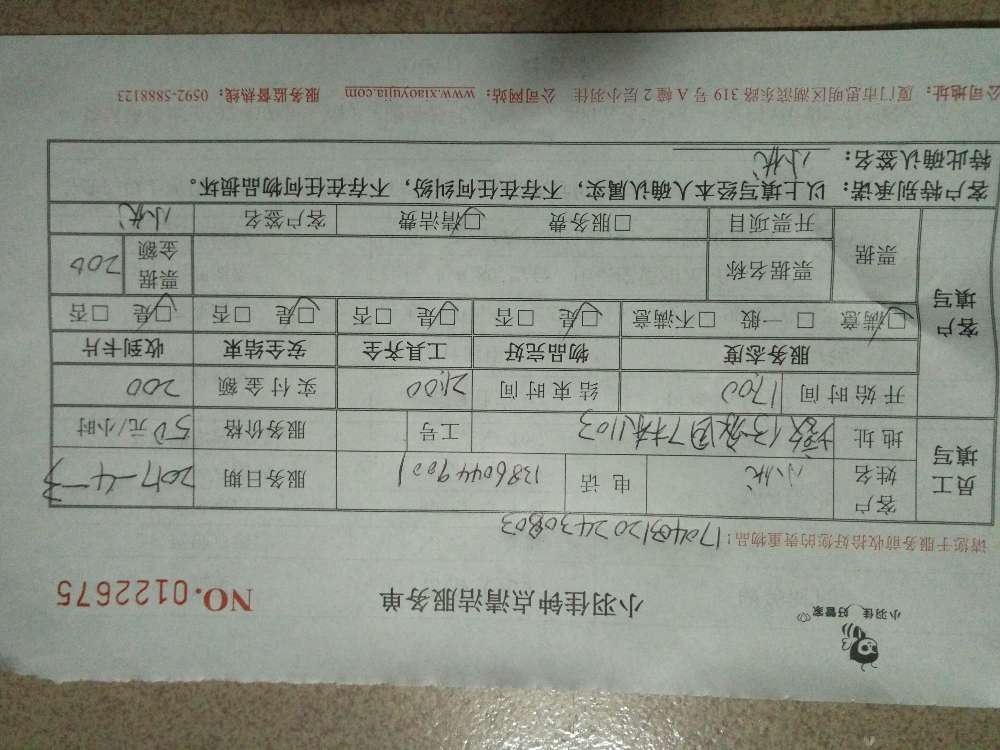 小羽佳 好管家
小羽佳钟点清洁服务单
NO.0122675
请您于服务前收拾好您的贵重物品！
员工填写
客户姓名
电话 13860449001
服务日期 2017-4-3
地址
7栋1103
工号
服务价格 50元/小时
开始时间 17:00
结束时间 21:00
实付金额 200
客户填写
服务态度 物品完好 工具齐全 安全结束 收到卡片
☑满意 □一般 □不满意 ☑是 □否 ☑是 □否 ☑是 □否 ☑是 □否
票据
票据名称
票据金额 200
开票项目 □服务费 ☑清洁费 客户签名
客户特别承诺：以上填写经本人确认属实，不存在任何纠纷，不存在任何物品损坏。
特此确认签名：
公司地址：厦门市思明区湖滨东路 319 号 A 幢 2 层小羽佳 公司网站：www.xiaoyujia.com 服务监督热线：0592-5888123